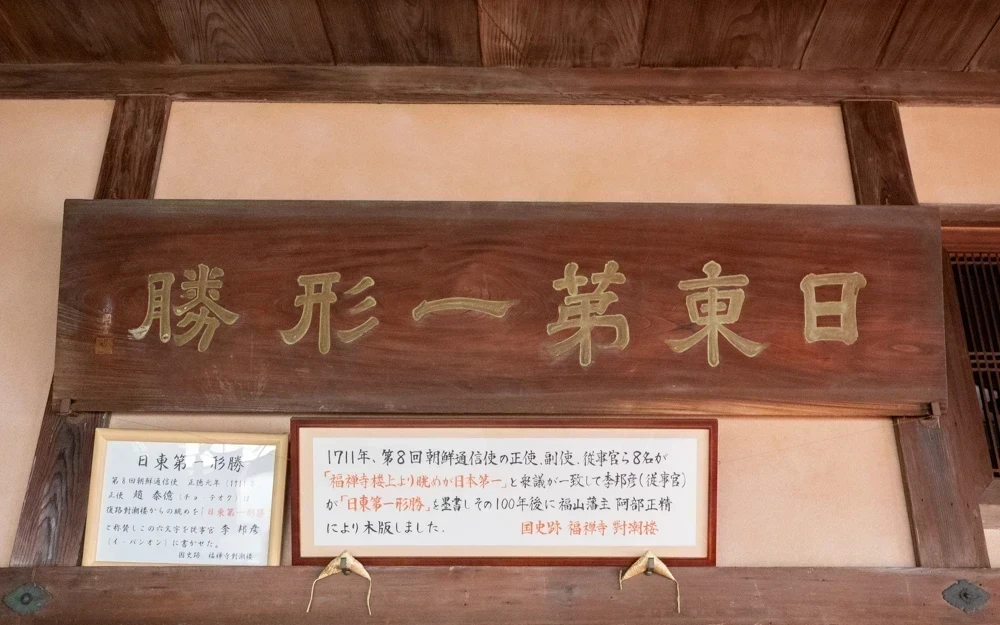 日東第一形勝
日東第一形勝
第8回朝鮮通信使 正徳元年(1711)
正使 趙 泰億(チョ テオク)は
復路對潮楼からの眺めを「日東第一形勝
と称賛しこの六文字を従事官 李 邦彦
(イーバンオン)に書かせた。
国史跡 福禅寺對潮楼
1711年、第8回朝鮮通信使の正使、副使、従事官ら8名が
「福禅寺楼上より眺めが日本第一」と衆議が一致して李邦彦(従事官)
が「日東第一形勝」と墨書しその100年後に福山藩主 阿部正精
により木版しました. 国史跡 福禅寺 對潮楼